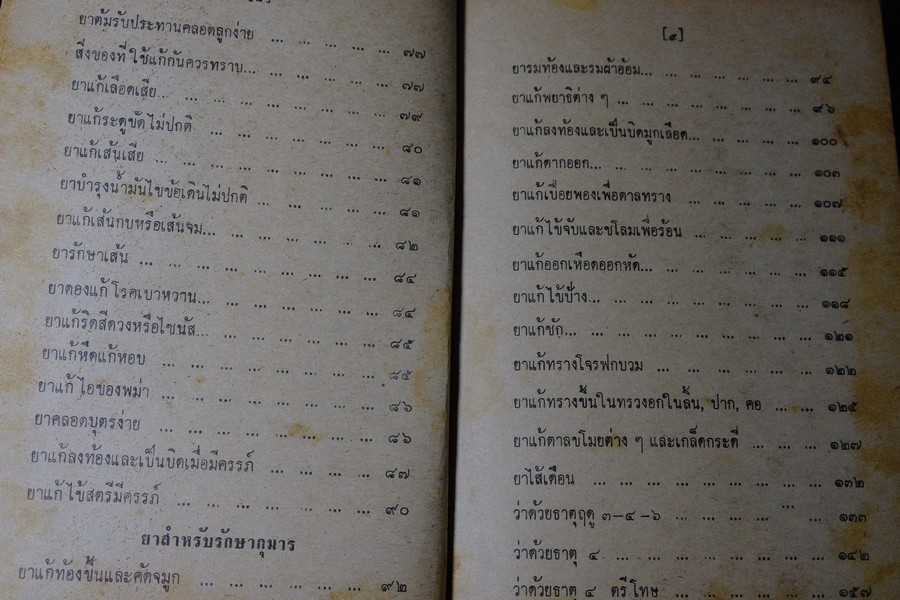 ยาต้มรับประทานคลอดลูกง่าย ... ... ... ... ... ๗๗
สิ่งของที่ใช้แก้กันควรทราบ... ... ... ... ... ๗๗
ยาแก้เลือดเสีย... ... ... ... ... ... ... ๗๙
ยาแก้ระดูขัดไม่ปกติ ... ... ... ... ... ... ๘๐
ยาแก้เส้นเสีย ... ... ... ... ... ... ... ๘๑
ยาบำรุงน้ำมันไขข้อเดินไม่ปกติ ... ... ... ... ... ๘๑
ยาแก้เส้นกบหรือเส้นจม... ... ... ... ... ... ๘๒
ยารักษาเส้น ... ... ... ... ... ... ... ... ๘๔
ยาดองแก้โรคเบาหวาน... ... ... ... ... ... ๘๔
ยาแก้ริดสีดวงหรือไซนัส... ... ... ... ... ... ๘๕
ยาแก้หืดแก้หอบ ... ... ... ... ... ... ... ๘๕
ยาแก้ไอของพม่า ... ... ... ... ... ... ... ๘๖
ยาคลอดบุตรง่าย ... ... ... ... ... ... ... ๘๖
ยาแก้ลงท้องและเป็นบิดเมื่อมีครรภ์ ... ... ... ... ๘๗
ยาแก้ไข้สตรีมีครรภ์ ... ... ... ... ... ... ๙๐
ยาสำหรับรักษากุมาร
ยาแก้ท้องขึ้นและคัดจมูก ... ... ... ... ... ... ๙๒
ยารมท้องและรมผ้าอ้อม... ... ... ... ... ... ๙๔
ยาแก้พยาธิต่าง ๆ ... ... ... ... ... ... ... ๙๖
ยาแก้ลงท้องและเป็นบิดมูกเลือด... ... ... ... ... ๑๐๐
ยาแก้ดากออก... ... ... ... ... ... ... ... ๑๐๓
ยาแก้เปื่อยพองเพื่อตาลทราง ... ... ... ... ... ๑๐๗
ยาแก้ไข้จับและชโลมเพื่อร้อน ... ... ... ... ... ๑๑๑
ยาแก้ออกเหือดออกหัด... ... ... ... ... ... ๑๑๕
ยาแก้ไข้ป้าง... ... ... ... ... ... ... ... ๑๑๘
ยาแก้ชัก... ... ... ... ... ... ... ... ... ๑๒๑
ยาแก้ทรางโจรฟกบวม ... ... ... ... ... ... ๑๒๒
ยาแก้ทรางขึ้นในทรวงอกในลิ้น, ปาก, คอ ... ... ๑๒๕
ยาแก้ตาลขโมยต่าง ๆ และเกล็ดกระดี่ ... ... ... ๑๒๗
ยาไส้เดือน ... ... ... ... ... ... ... ... ๑๓๒
ว่าด้วยธาตุฤดู ๓-๔-๖ ... ... ... ... ... ๑๓๓
ว่าด้วยธาตุ ๔ ... ... ... ... ... ... ... ๑๔๒
ว่าด้วยธาตุ ๔ ตรีโทษ ... ... ... ... ... ๑๕๗